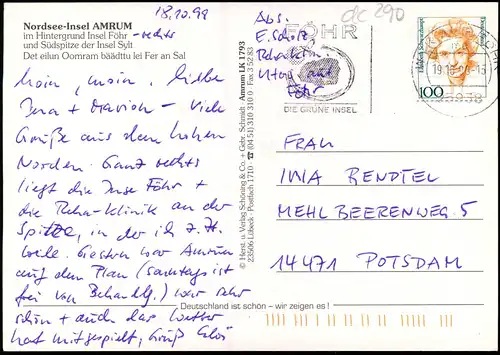 18.10.99
Nordsee-Insel AMRUM
im Hintergrund Insel Föhr - rechts
und Südspitze der Insel Sylt
Det eilun Oomram bäädttu lei Fer an Sal
Moin, moin, liebe
Ina + Marion - Viele
Grüße aus dem hohen
Norden. Ganz rechts
liegt die Insel Föhr +
die Reha-Klinik an der
Spitze, in der ich z. Zt.
weile. Gestern war Amrum
auf dem Plan (samstags ist
frei von Behandlg.) war sehr
schön + auch das Wetter
hat mitgespielt, Gruß
© Herst. u. Verlag Schöning & Co. + Gebr. Schmidt Amrum LK 1793
23506 Lübeck · Postfach 1710 · ☎ (04 51) 310 310 0 · Fax 3 52 83
Deutschland ist schön – wir zeigen es!
Abs.
E. Scholz
Rehaklin.
Utersum auf
Föhr
dc 290
FÖHR
DIE GRÜNE INSEL
19.10.99-15
100
FRAU
INA RENDTEL
MEHLBEERENWEG 5
14471 POTSDAM